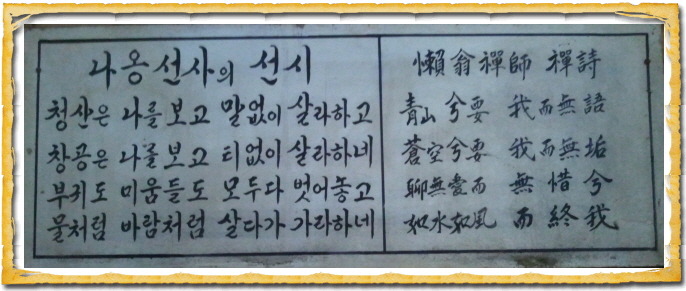 나옹선사의 선시
청산은 나를 보고 말없이 살라하고
창공은 나를 보고 티없이 살라하네
부귀도 미움들도 모두다 벗어놓고
물처럼 바람처럼 살다가 가라하네
懶翁禪師 禪詩
青山兮要 我而無語
蒼空兮要 我而無垢
聊無愛而 無惜兮
如水如風 而終我